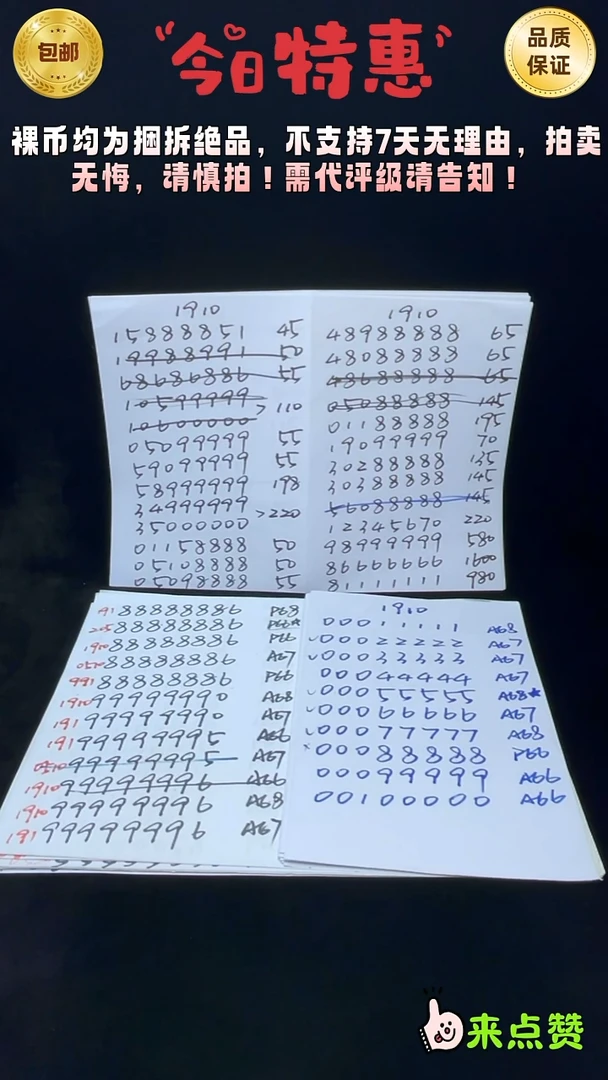 包邮
今日特惠
品质
保证
裸币均为捆拆绝品，不支持7天无理由，拍卖
无悔，请慎拍！需代评级请告知！
1910
15888851 45
19988991 50
68686886 55
10599999
10600000 > 110
05099999 55
59099999 55
58999999 198
34999999
35000000 >220
01158888 50
05108888 50
05098888 55
1910
48988888 65
48088888 65
48688888 65
05088888 145
01188888 195
19099999 70
30288888 135
30388888 145
56088888 145
12345670 220
98999999 580
86666666 1600
81111111 980
91 88888886 P68
205 88888886 P66★
1910 88888886 P66
0510 88888886 A67
991 88888886 P66
1910 99999990 A68
191 99999990 A67
191 99999995 A66
0510 99999995 A67
1910 99999996 A66
1910 99999996 A68
191 99999996 A67
1910
00011111 A68
00022222 A67
00033333 A67
00044444 A67
00055555 A68★
00066666 A67
00077777 A68
00088888 P66
00099999 A66
00100000 A66
来点赞